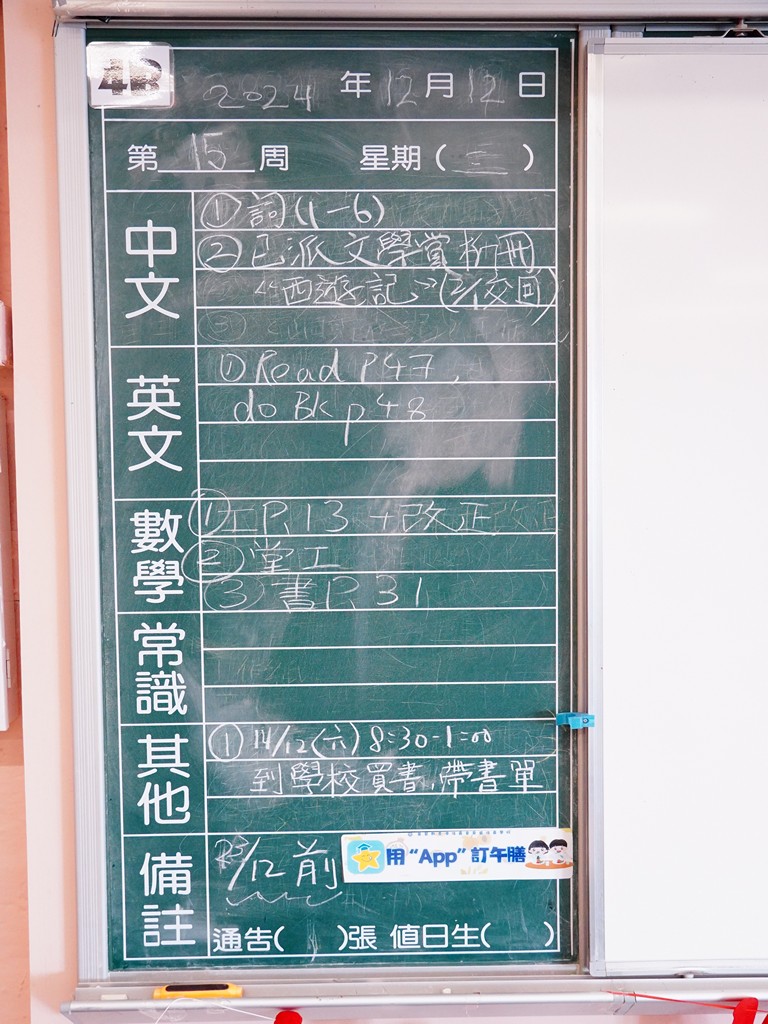 4B
2024 年 12 月 12 日
第 15 周 星期 ( 三 )
中文
① 詞 (1-6)
② 已派文學賞析冊
“西遊記” (2/1交回)
英文
① Read P47,
do BK p48
數學
① 工P.13 + 改正
② 堂工
③ 書P.31
常識
其他
① 14/12 (六) 8:30-1:00
到學校買書,帶書單
備註
/12 前
用 “App” 訂午膳
通告( )張 值日生( )